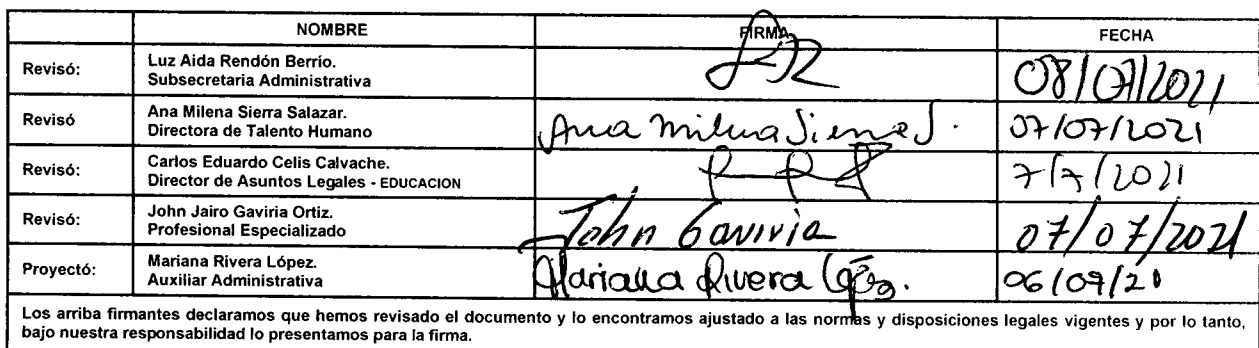 NOMBRE FIRMA FECHA
Revisó: Luz Aida Rendón Berrío.
Subsecretaria Administrativa
08/07/2021
Revisó Ana Milena Sierra Salazar.
Directora de Talento Humano
Ana Milena Sierra S. 07/07/2021
Revisó: Carlos Eduardo Celis Calvache.
Director de Asuntos Legales - EDUCACION
7/7/2021
Revisó: John Jairo Gaviria Ortiz.
Profesional Especializado
John Gaviria 07/07/2021
Proyectó: Mariana Rivera López.
Auxiliar Administrativa
Mariana Rivera López. 06/09/21
Los arriba firmantes declaramos que hemos revisado el documento y lo encontramos ajustado a las normas y disposiciones legales vigentes y por lo tanto,
bajo nuestra responsabilidad lo presentamos para la firma.